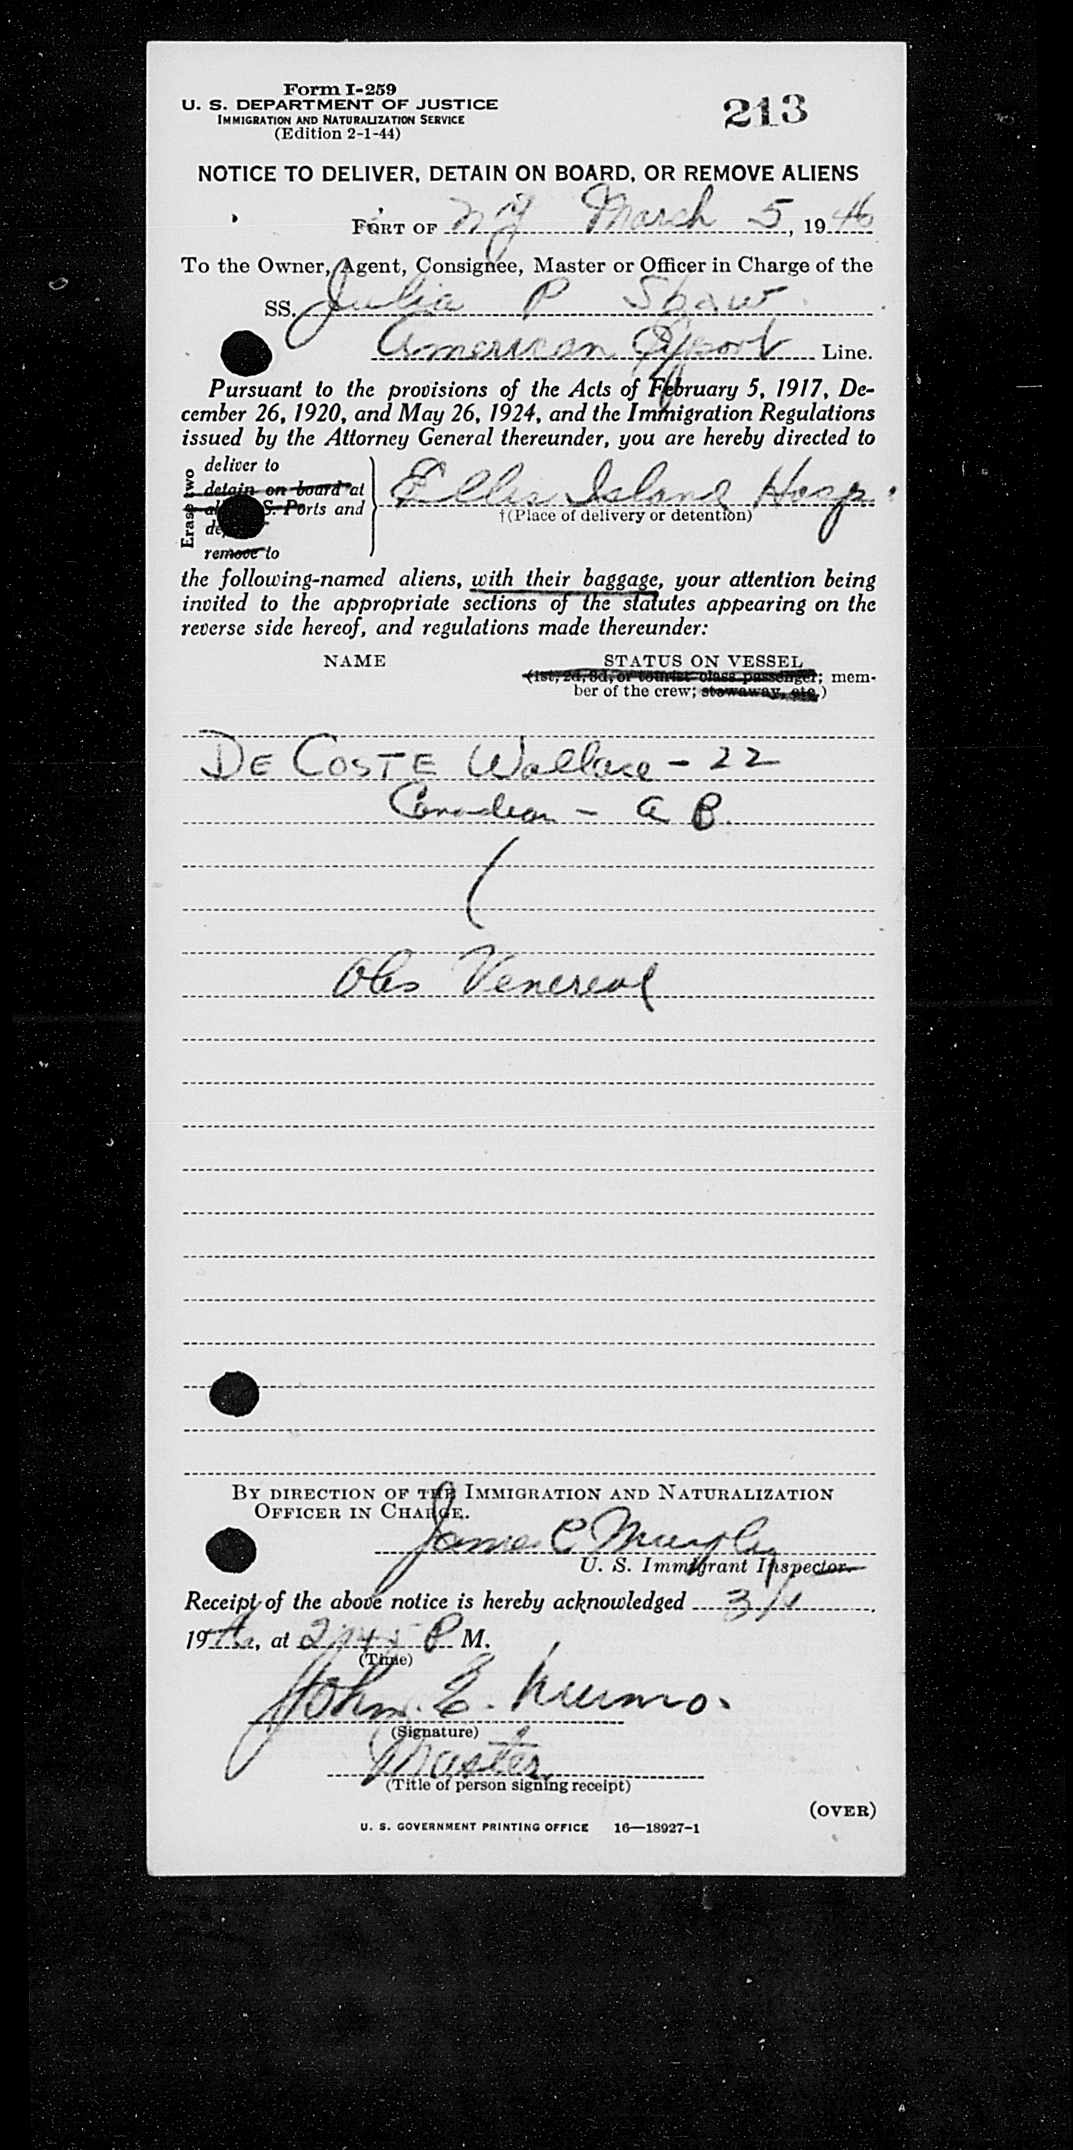 Form I-259
U. S. DEPARTMENT OF JUSTICE
IMMIGRATION AND NATURALIZATION SERVICE
(Edition 2-1-44)
213
NOTICE TO DELIVER, DETAIN ON BOARD, OR REMOVE ALIENS
PORT OF NY March 5, 1946
To the Owner, Agent, Consignee, Master or Officer in Charge of the
SS. Julia P Shaw
American Export Line.
Pursuant to the provisions of the Acts of February 5, 1917, De-
cember 26, 1920, and May 26, 1924, and the Immigration Regulations
issued by the Attorney General thereunder, you are hereby directed to
Erase two
deliver to
detain on board at
S. Ports and
remove to
Ellis Island Hosp.
†(Place of delivery or detention)
the following-named aliens, with their baggage, your attention being
invited to the appropriate sections of the statutes appearing on the
reverse side hereof, and regulations made thereunder:
NAME
STATUS ON VESSEL
(1st, 2d, 3d, or tourist class passenger; mem-
ber of the crew; stowaway, etc.)
DE COSTE Wallace - 22
Canadian - A B.
Obs Venereal
BY DIRECTION OF THE IMMIGRATION AND NATURALIZATION
OFFICER IN CHARGE.
James C Murphy
U. S. Immigrant Inspector.
Receipt of the above notice is hereby acknowledged
19 , at 2:45 P M.
(Time)
John E. Munro.
(Signature)
Master
(Title of person signing receipt)
(OVER)
U. S. GOVERNMENT PRINTING OFFICE 16—18927-1